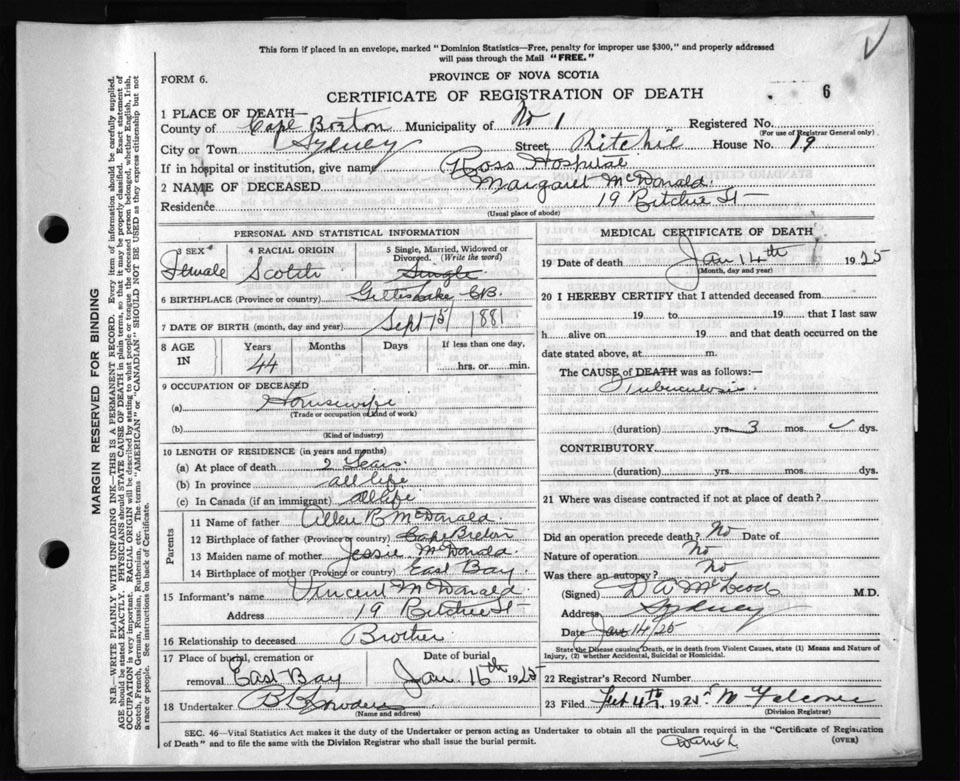 This form if placed in an envelope, marked "Dominion Statistics—Free, penalty for improper use $300," and properly addressed
will pass through the Mail "FREE."
FORM 6.
PROVINCE OF NOVA SCOTIA
CERTIFICATE OF REGISTRATION OF DEATH
6
1 PLACE OF DEATH—
County of Cape Breton Municipality of No 1 Registered No.
(For use of Registrar General only)
City or Town Sydney Street Ritchie House No. 19
If in hospital or institution, give name Ross Hospital
2 NAME OF DECEASED Margaret McDonald.
Residence 19 Ritchie St
(Usual place of abode)
PERSONAL AND STATISTICAL INFORMATION
3 SEX Female
4 RACIAL ORIGIN Scotch
5 Single, Married, Widowed or Divorced. (Write the word) Single
6 BIRTHPLACE (Province or country) Gillis Lake C.B.
7 DATE OF BIRTH (month, day and year) Sept 1881
8 AGE IN Years 44 Months Days If less than one day, hrs. or min.
9 OCCUPATION OF DECEASED
(a) Housewife
(Trade or occupation or kind of work)
(b)
(Kind of industry)
10 LENGTH OF RESIDENCE (in years and months)
(a) At place of death 2 Years
(b) In province all life
(c) In Canada (if an immigrant) all life
Parents
11 Name of father Allen B McDonald.
12 Birthplace of father (Province or country) Cape Breton
13 Maiden name of mother Jessie McDonald.
14 Birthplace of mother (Province or country) East Bay.
15 Informant's name Vincent McDonald.
Address 19 Ritchie St
16 Relationship to deceased Brother
17 Place of burial, cremation or removal East Bay
Date of burial Jan. 16th 1925
18 Undertaker
(Name and address)
MEDICAL CERTIFICATE OF DEATH
19 Date of death Jan 14th 1925
(Month, day and year)
20 I HEREBY CERTIFY that I attended deceased from
19 to 19 that I last saw
h alive on 19 and that death occurred on the
date stated above, at m.
The CAUSE of DEATH was as follows:
Tuberculosis.
(duration) yrs. 3 mos. dys.
CONTRIBUTORY.
(duration) yrs. mos. dys.
21 Where was disease contracted if not at place of death?
Did an operation precede death? No Date of
Nature of operation No
Was there an autopsy? No
(Signed) D A McLeod M.D.
Address Sydney
Date Jan 14/25
State the Disease causing Death, or in death from Violent Causes, state (1) Means and Nature of
Injury, (2) whether Accidental, Suicidal or Homicidal.
22 Registrar's Record Number
23 Filed Feb 4th, 1925
(Division Registrar)
SEC. 46—Vital Statistics Act makes it the duty of the Undertaker or person acting as Undertaker to obtain all the particulars required in the "Certificate of Registration
of Death" and to file the same with the Division Registrar who shall issue the burial permit.
(OVER)
MARGIN RESERVED FOR BINDING
N.B.—WRITE PLAINLY WITH UNFADING INK—THIS IS A PERMANENT RECORD. Every item of information should be carefully supplied.
AGE should be stated EXACTLY. PHYSICIANS should STATE CAUSE OF DEATH in plain terms, so that it may be properly classified. Exact statement of
OCCUPATION is very important. RACIAL ORIGIN will be described by stating to what people or tongue the deceased person belonged, whether English, Irish,
Scotch, French, German, Russian, Ruthenian, etc. The terms "AMERICAN" or "CANADIAN" SHOULD NOT BE USED as they express citizenship but not
a race or people. See instructions on back of Certificate.